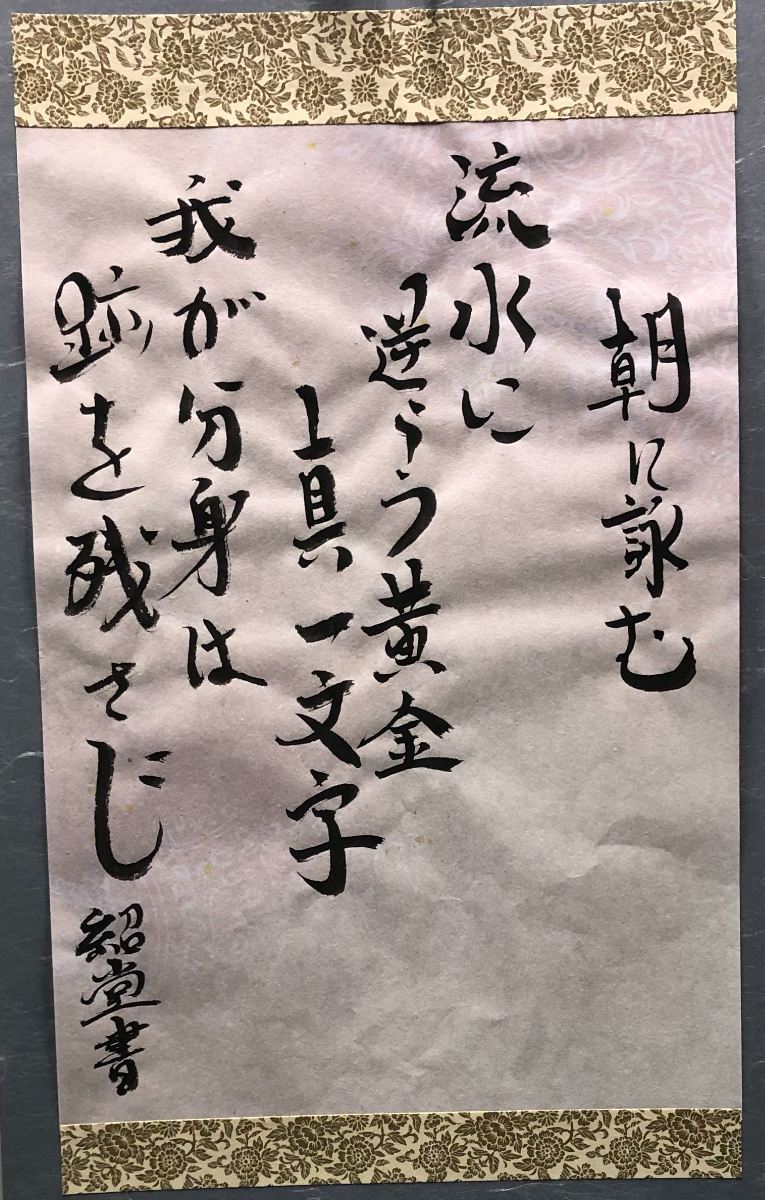 朝に詠む
流水に
逆らう黄金
真一文字
我が分身は
跡を残さじ
紹堂書